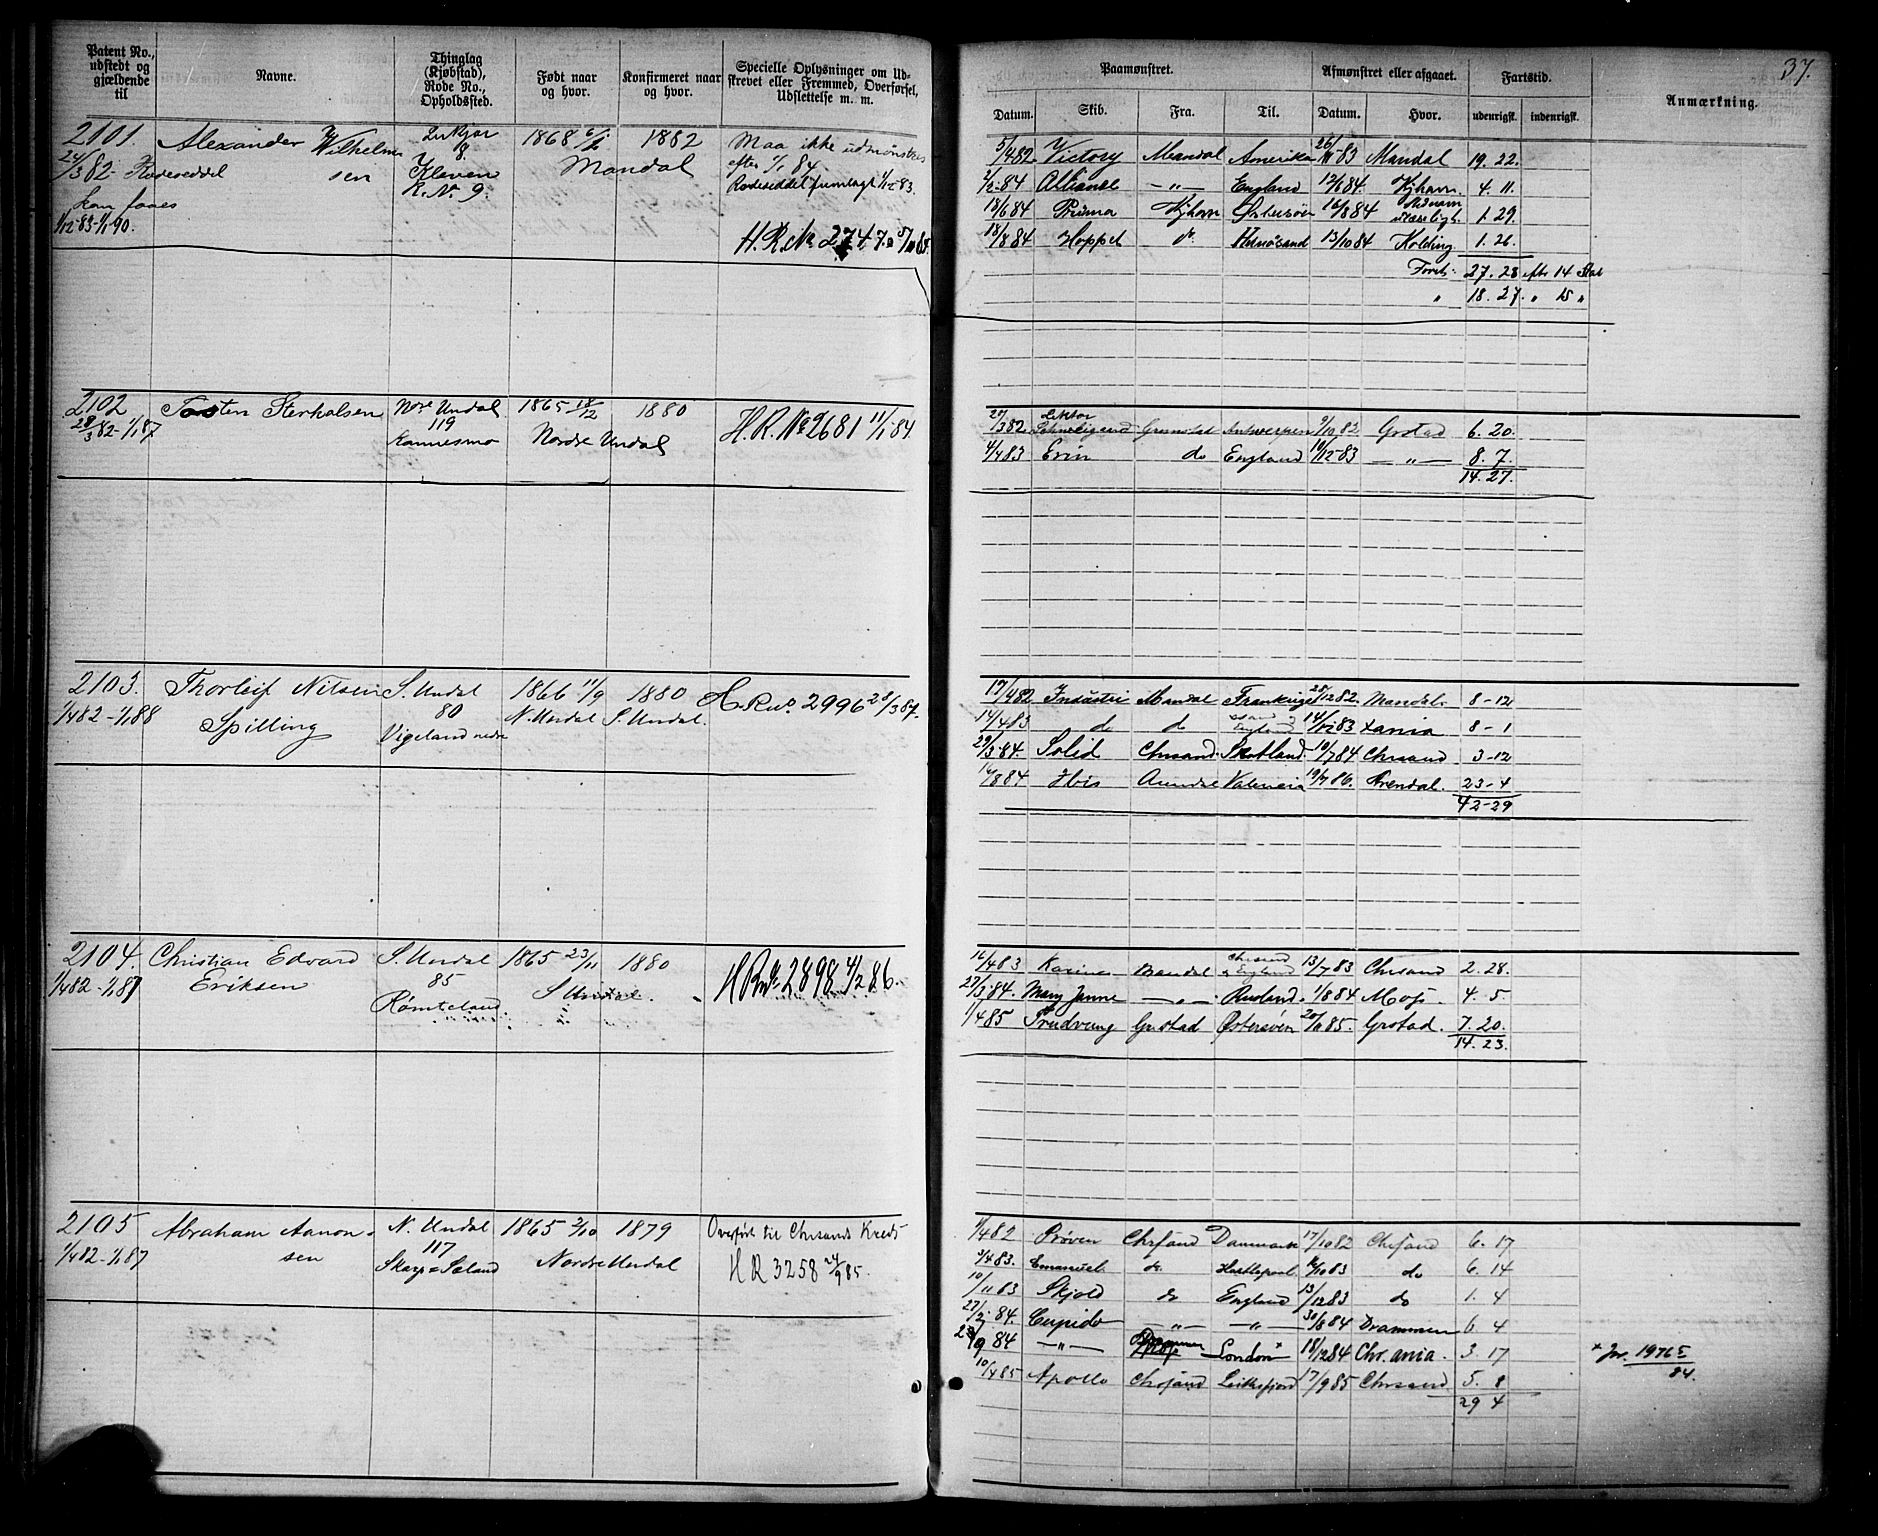 37.
Patent No., udstedt og gjældende til
Navne.
Thinglag (Kjøbstad), Rode No., Opholdssted.
Født naar og hvor.
Konfirmeret naar og hvor.
Specielle Oplysninger om Udskrevet eller Fremmed, Overførsel, Udslettelse m. m.
Paamønstret.
Afmønstret eller afgaaet.
Fartstid.
Anmærkning.
Datum. Skib. Fra. Til. Datum. Hvor. udenrigsk. indenrigsk.
2101. Alexander Wilhelmsen 1868 6/2 1882
24/3 82 - Rodeseddel
kan faaes
1/12-83-1/1-90.
8.
Kleven
R. No 9.
Mandal
Maa ikke udmønstres
efter 1/1 84.
Rodeseddel fremlagt 1/12-83.
5/4 82 Victory Mandal Amerika 26/11-83 Mandal 19. 22.
2/2-84 Alliance —"— England 12/6 84. Kjhavn. 4. 11.
13/6 84 Prima Kjhavn Østersøen 16/8 84 1. 29.
18/8 84 Hoppet do Hernøsand 13/10 84 Kolding 1. 26.
27. 28 efter 14
" 18. 27. " 15 "
2102 Torsten Sterkalsen Nore Undal 1865 18/12 1880 H. R. No 2681 11/1-84.
28/3 82-1/1 87 119
Nordre Undal
27/3 82 Grimstad Antwerpen 9/10 82 Grstad 6. 20.
4/4 83 Erin do England 10/12-83 —"— 8. 7.
14. 27.
2103. Thorleif Nilsen S. Undal 1866 11/9 1880 H R no 2996 28/3 87.
1/4 82-1/1 88 Spilling 80 N. Undal S. Undal.
Vigeland nedre
17/4 82 Industri Mandal Frankrige 28/12 82. Mandal. 8-12
14/4 83. d d 14/12 83 Xania 8-1
29/3-84. Solid Chrsand. Skotland. 10/7 84 Chrsand 3-12
14/8 84 Ibis Arendal Valencia 19/7 86. Arendal. 23-4
42-29
2104. Christian Edvard S. Undal 1865 23/11 1880 H R no 2898 4/2 86.
1/4 82-1/1 87 Eriksen 85 S. Undal.
Rømteland.
16/4 83 Karina Mandal Chrsand og England 13/7 83 Chrsand 2. 28.
27/3-84. Mary Janne —"— Rusland. 1/8 84 Moss. 4. 5.
1/4 85 Trudvang Grstad Østersøen 85. Grstad. 7. 20.
14. 23.
2105 Abraham Aanonsen N. Undal 1865 2/10 1879 Overført til Chrsands Kreds
1/4 82-1/1 87 117 Nordre Undal H R 3258 24/9 85.
Skarp=Sæland
1/4 82 Prøven Chrsand Danmark 17/10 82 Chrsand 6. 17
3/4 83. Emanuel do Hartlepool 10 83 do 6. 14
10/11 83 Skjold do England 13/12 83 do 1. 4
27/2-84. Cupido —"— —"— 30/8 84 Drammen 6. 4
23/9 84 —"— Drammen London* 18/12 84 Chr.ania. 3. 17 * Jr. 19765/84.
10/4 85 Apollo Chrsand 17/9 85 Chrsand 5. 8
29 4